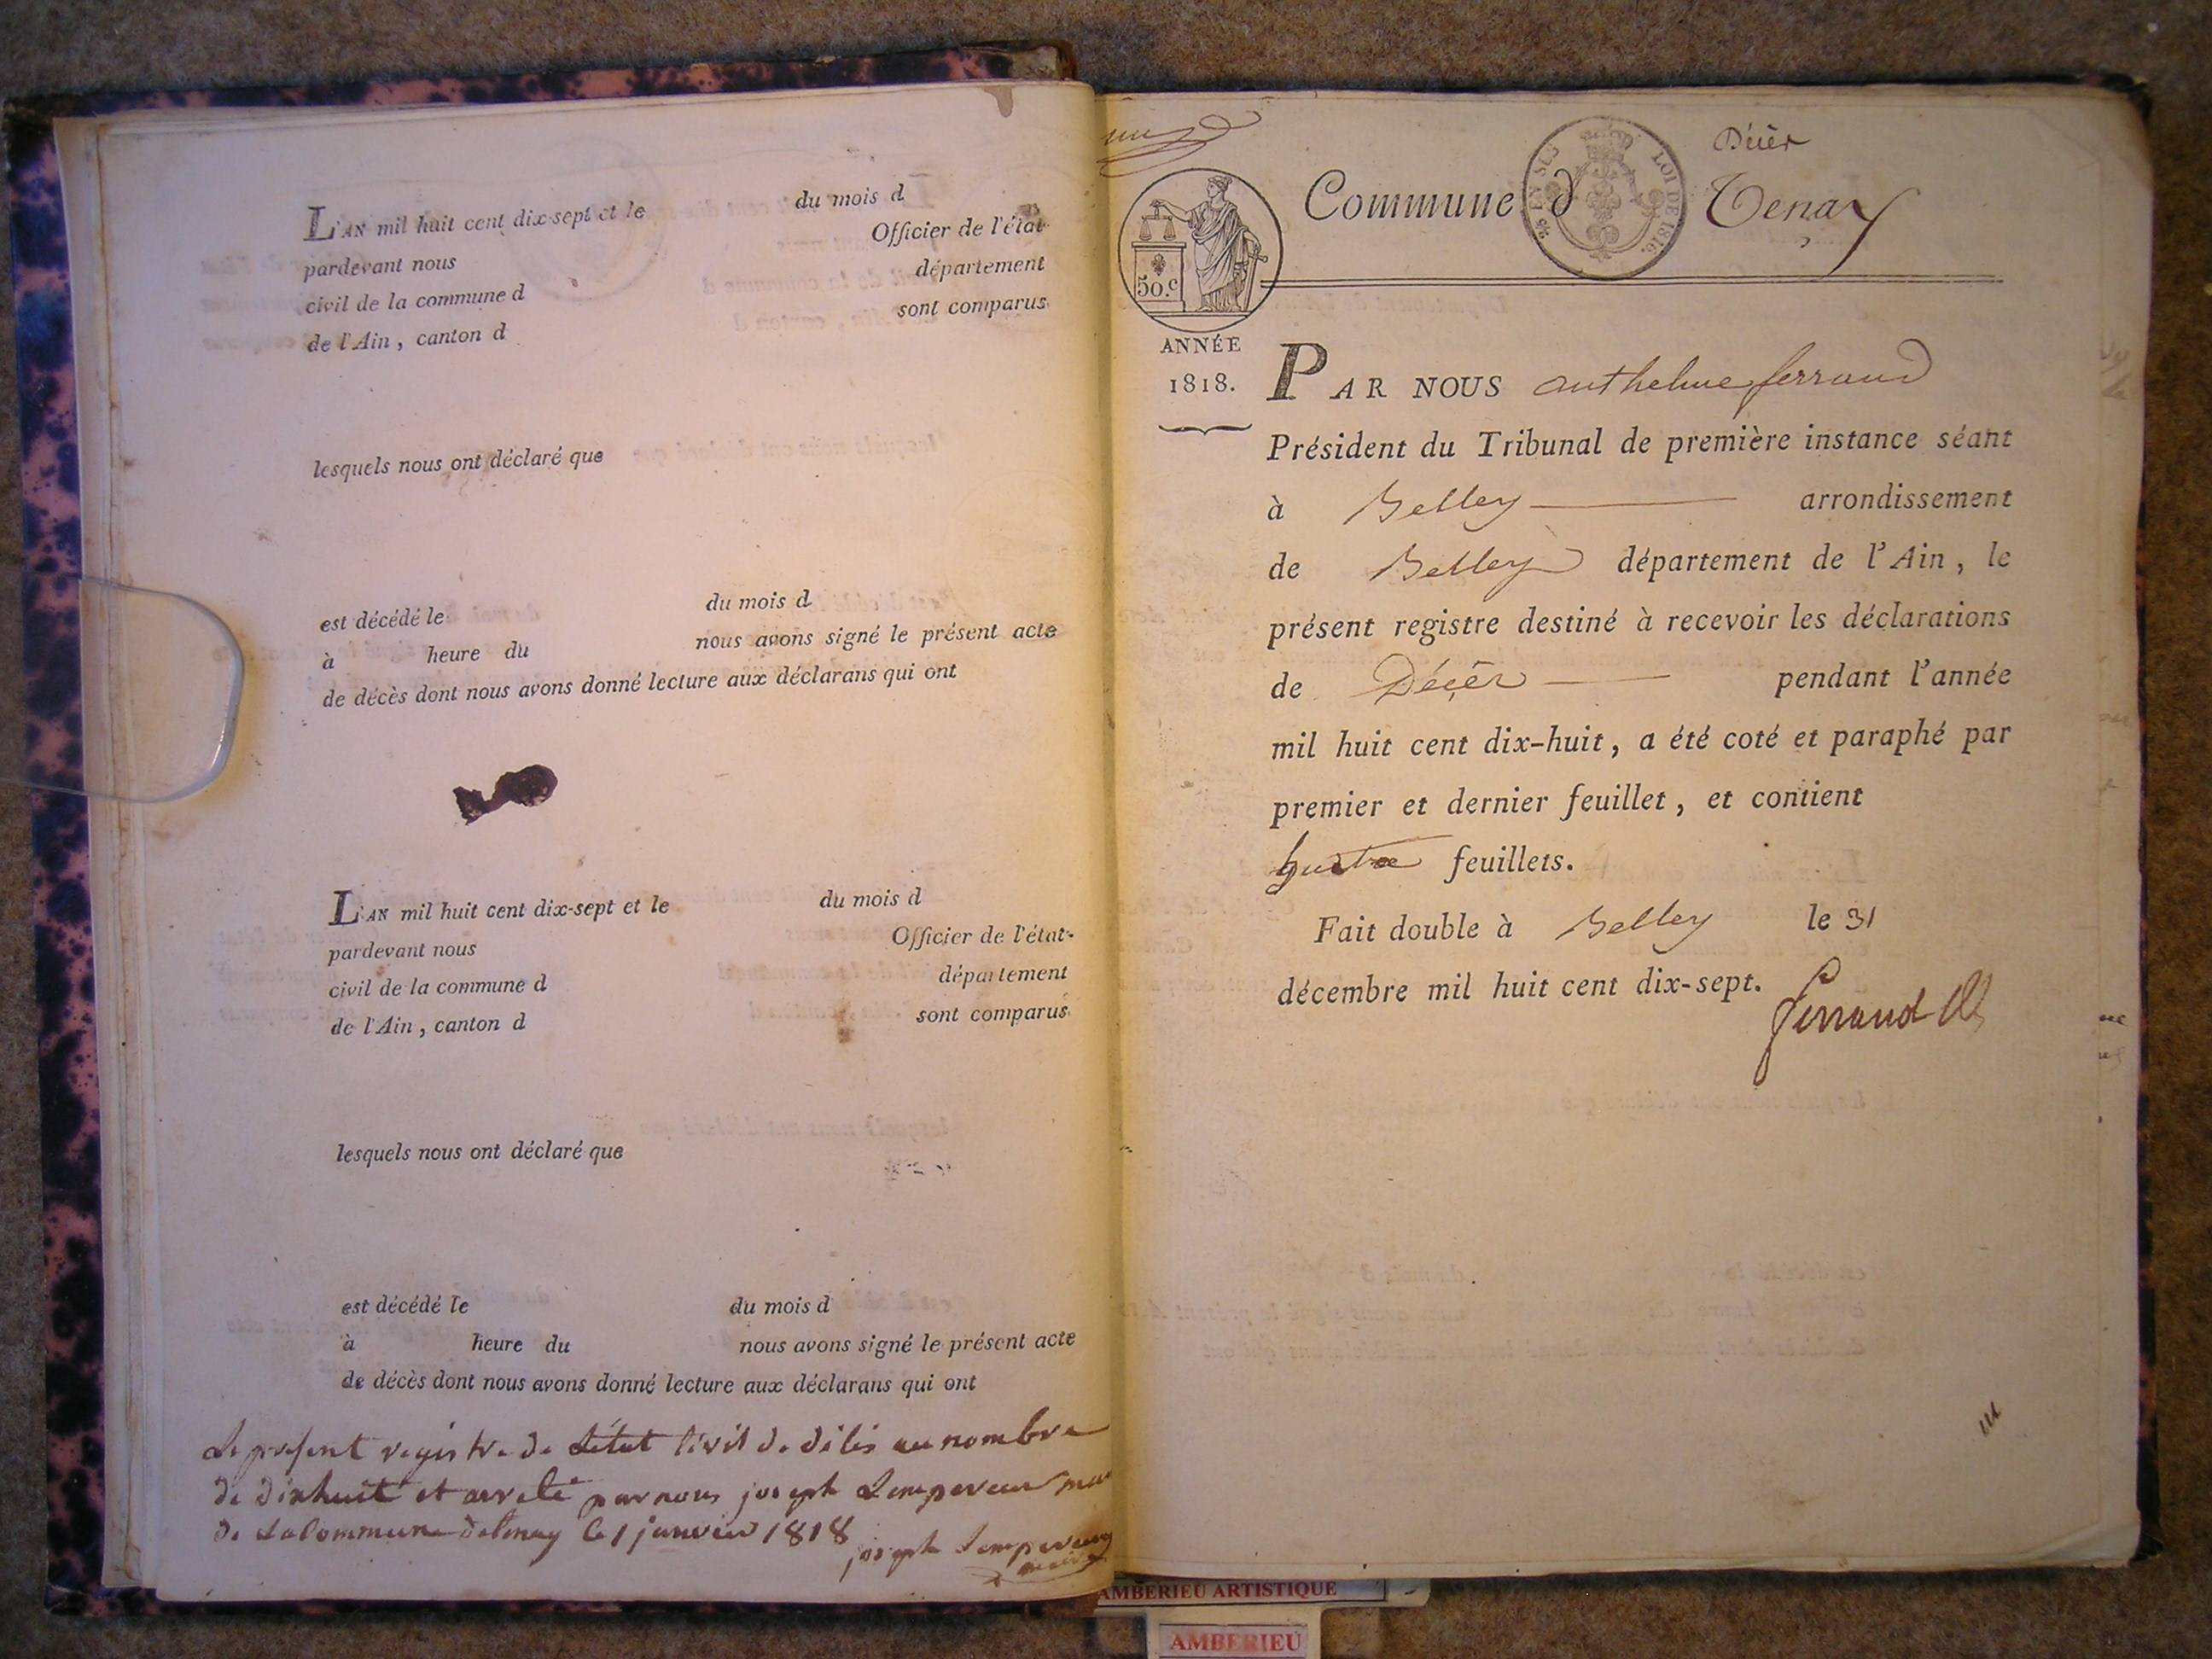 L'AN mil huit cent dix-sept et le du mois d
pardevant nous Officier de l'état-
civil de la commune d département
de l'Ain, canton d sont comparus
lesquels nous ont déclaré que
est décédé le du mois d
à heure du nous avons signé le présent acte
de décès dont nous avons donné lecture aux déclarans qui ont
L'AN mil huit cent dix-sept et le du mois d
pardevant nous Officier de l'état-
civil de la commune d département
de l'Ain, canton d sont comparus
lesquels nous ont déclaré que
est décédé le du mois d
à heure du nous avons signé le présent acte
de décès dont nous avons donné lecture aux déclarans qui ont
Le present registre de Létat Civil de déces au nombre
de dixhuit et arreté par nous joseph Lempereur
de La Commune detenay le 1 janvier 1818
joseph Lempereur
maire
Décès
Commune d Tenay
LOI DE 1816.
50.c
ANNÉE
1818.
PAR NOUS anthelme ferrand
Président du Tribunal de première instance séant
à Belley arrondissement
de Belley département de l'Ain, le
présent registre destiné à recevoir les déclarations
de Décès pendant l'année
mil huit cent dix-huit, a été coté et paraphé par
premier et dernier feuillet, et contient
feuillets.
Fait double à Belley le 31
décembre mil huit cent dix-sept.
ferrand
AMBERIEU ARTISTIQUE
AMBERIEU